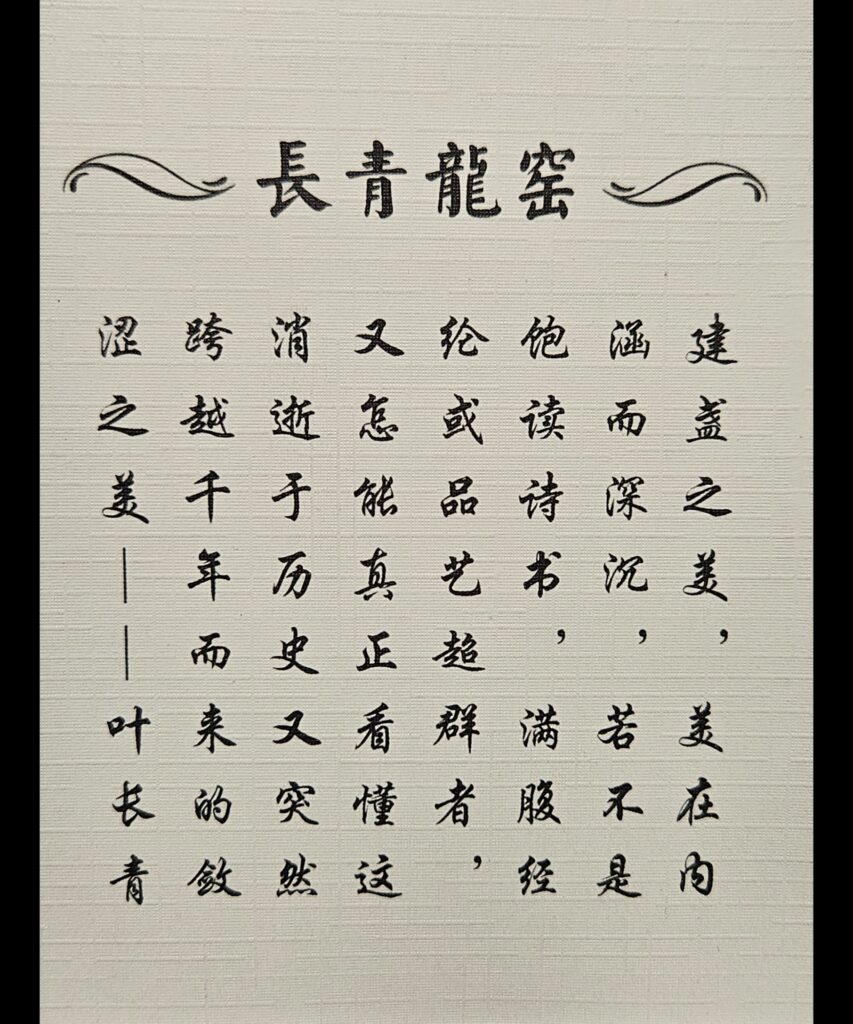 長青龍窑
建盏之美，美在内
涵而深沉，若不是
饱读诗书，满腹经
纶或品艺超群者，
又怎能真正看懂这
消逝于历史又突然
跨越千年而来的敛
涩之美——叶长青